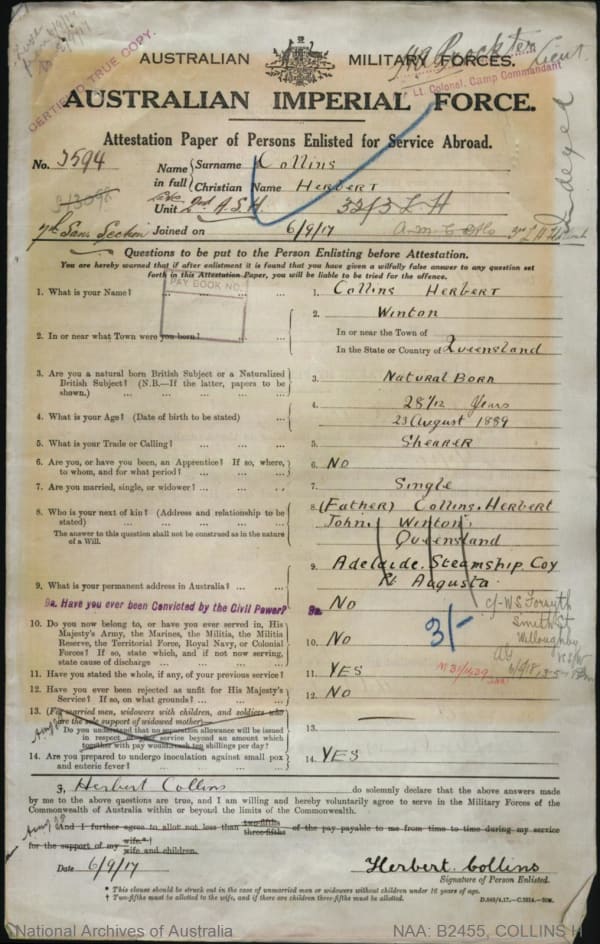 CERTIFIED TRUE COPY.
AUSTRALIAN MILITARY FORCES.
Lt. Colonel. Camp Commandant
AUSTRALIAN IMPERIAL FORCE.
Attestation Paper of Persons Enlisted for Service Abroad.
No. 3594
Name in full
Surname Collins
Christian Name HERBERT
Unit 2nd A.S.H 32/3 L H
Joined on 6/9/17
Questions to be put to the Person Enlisting before Attestation.
You are hereby warned that if after enlistment it is found that you have given a wilfully false answer to any question set
forth in this Attestation Paper, you will be liable to be tried for the offence.
PAY BOOK NO.
1. What is your Name? ... 1. Collins HERBERT
2. In or near what Town were you born? ... 2. WINTON
In or near the Town of
In the State or Country of Queensland
3. Are you a natural born British Subject or a Naturalized
British Subject? (N.B.—If the latter, papers to be
shown.) ... 3. NATURAL BORN
4. What is your Age? (Date of birth to be stated) ... 4. 28 Years
23 August 1889
5. What is your Trade or Calling? ... 5. SHEARER
6. Are you, or have you been, an Apprentice? If so, where,
to whom, and for what period? ... 6. NO
7. Are you married, single, or widower? ... 7. Single
8. Who is your next of kin? (Address and relationship to be
stated) ... 8. (Father) Collins. Herbert
John, Winton
Queensland
The answer to this question shall not be construed as in the nature
of a Will.
9. What is your permanent address in Australia? ... 9. Adelaide. Steamship. Coy
Pt Augusta
9a. Have you ever been Convicted by the Civil Power? 9a. No
c/- W S Forsyth
Smith St
Willoughby
3/-
10. Do you now belong to, or have you ever served in, His
Majesty's Army, the Marines, the Militia, the Militia
Reserve, the Territorial Force, Royal Navy, or Colonial
Forces? If so, state which, and if not now serving,
state cause of discharge ... 10. No
11. Have you stated the whole, if any, of your previous service? 11. YES
12. Have you ever been rejected as unfit for His Majesty's
Service? If so, on what grounds? ... 12. NO
13. (For married men, widowers with children, and soldiers who
are the sole support of widowed mother)—
Do you understand that no separation allowance will be issued
in respect of your service beyond an amount which
together with pay would reach ten shillings per day? 13. —
14. Are you prepared to undergo inoculation against small pox
and enteric fever? ... 14. YES
I, Herbert Collins do solemnly declare that the above answers made
by me to the above questions are true, and I am willing and hereby voluntarily agree to serve in the Military Forces of the
Commonwealth of Australia within or beyond the limits of the Commonwealth.
*And I further agree to allot not less than two-fifths three-fifths of the pay payable to me from time to time during my service
for the support of my wife.* wife and children.
Date 6/9/17 Herbert. Collins
Signature of Person Enlisted.
* This clause should be struck out in the case of unmarried men or widowers without children under 16 years of age.
† Two-fifths must be allotted to the wife, and if there are children three-fifths must be allotted.
National Archives of Australia NAA: B2455, COLLINS H